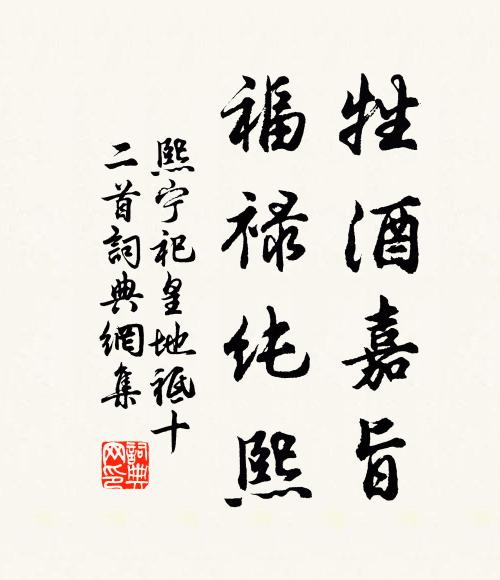 牲酒嘉旨
福禄纯熙
熙宁祀皇地祇十
二首詞典網集
詞典
网印